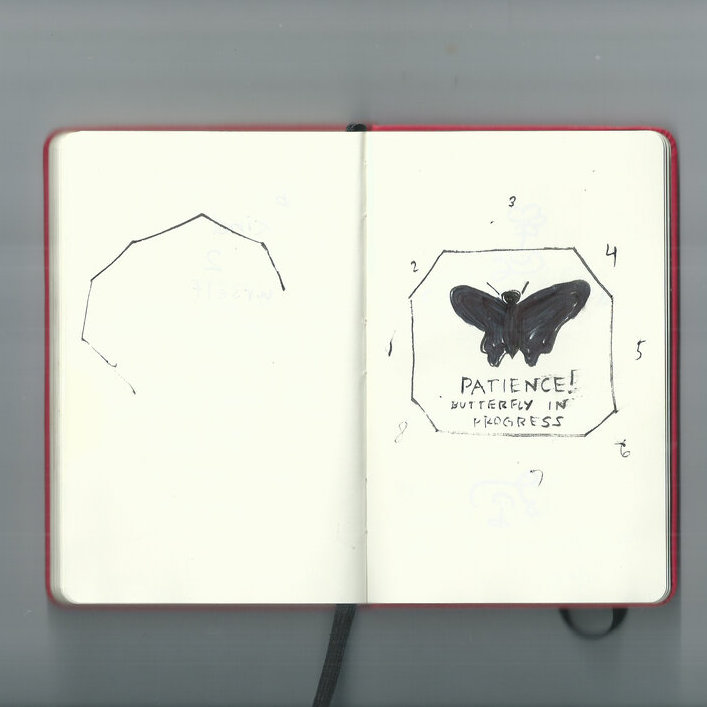 3
2
4
1
5
PATIENCE!
BUTTERFLY IN
PROGRESS
8
6
7